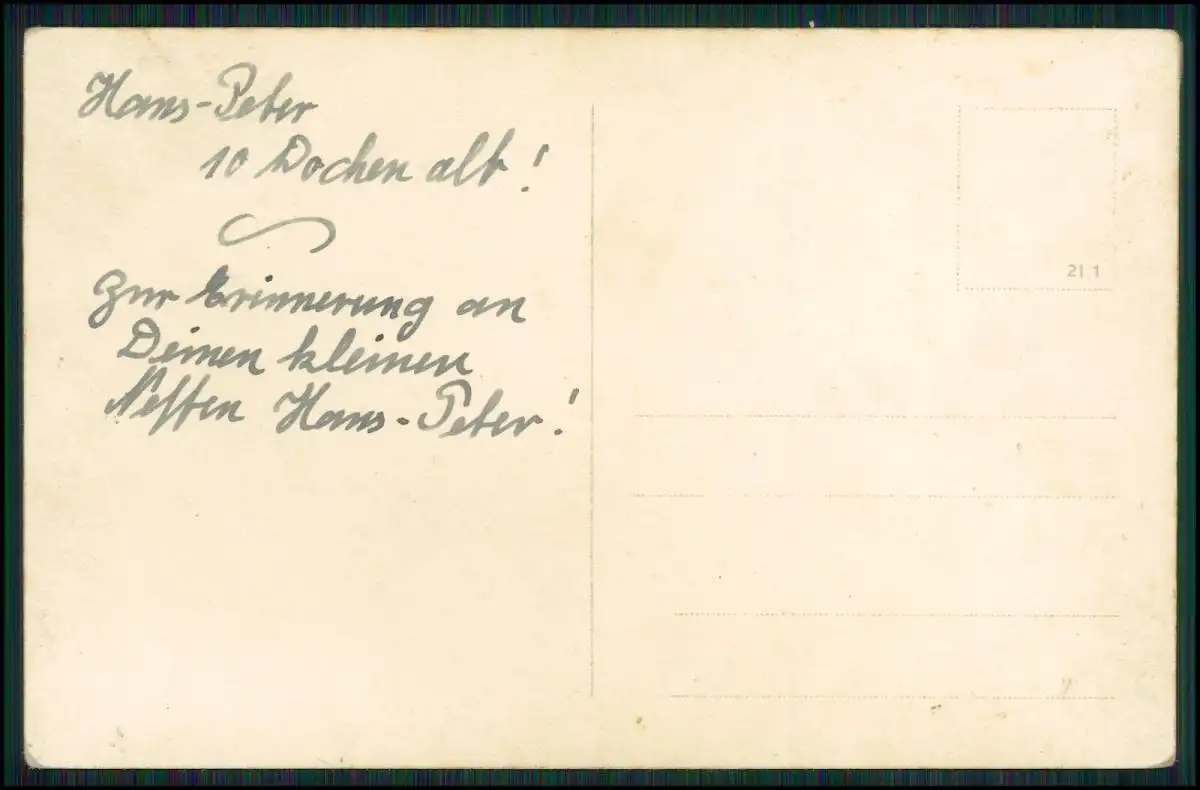 Hans-Peter
10 Wochen alt!
Zur Erinnerung an
Deinen kleinen
Neffen Hans-Peter!
21 1